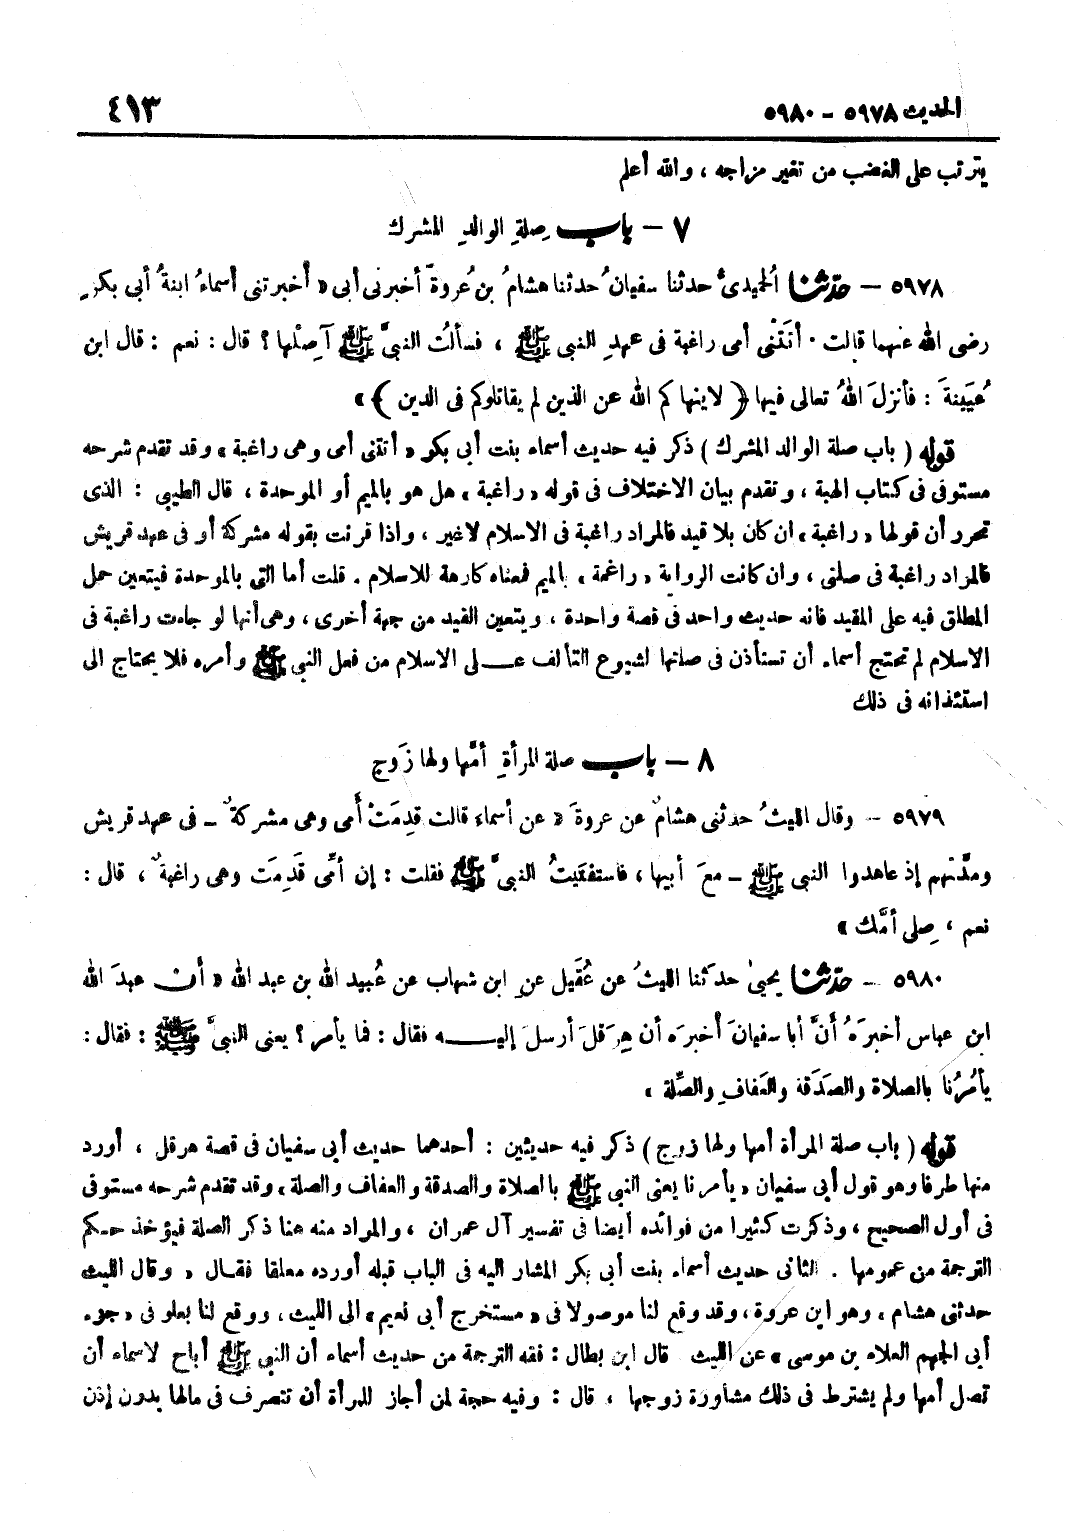 الحديث ٥٩٧٨ - ٥٩٨٠
٤١٣
يترتب على الغضب من تغير مزاجه ، والله أعلم
٧ - باب صِلةِ الوالدِ المشرك
٥٩٧٨ - حدّثنا الحُميدىُّ حدثنا سفيانُ حدثنا هشامُ بن عُروةَ أخبرنى أبى « أخبرتنى أسماءُ ابنةُ أبى بكرٍ
رضى الله عنهما قالت : أتَتْنى أمى راغبة فى عهدِ النبى ﷺ ، فسألتُ النبىَّ ﷺ آصِلُها ؟ قال : نعم : قال ابن
عُيَينةَ : فأنزلَ اللهُ تعالى فيها ﴿ لاينهاكم الله عن الذين لم يقاتلوكم فى الدين ﴾ »
قوله ( باب صلة الوالد المشرك ) ذكر فيه حديث أسماء بنت أبى بكر « أتتنى أمى وهى راغبة » وقد تقدم شرحه
مستوفى فى كتاب الهبة ، وتقدم بيان الاختلاف فى قوله « راغبة » هل هو بالميم أو الموحدة ، قال الطيبى : الذى
تحرر أن قولها « راغبة » ان كان بلا قيد فالمراد راغبة فى الاسلام لاغير ، واذا قرنت بقوله مشركة أو فى عهد قريش
فالمراد راغبة فى صلتى ، وان كانت الرواية « راغمة » بالميم فمعناه كارهة للاسلام . قلت أما التى بالموحدة فيتعين حمل
المطلق فيه على المقيد فانه حديث واحد فى قصة واحدة ، ويتعين القيد من جهة أخرى ، وهى أنها لو جاءت راغبة فى
الاسلام لم تحتج أسماء أن تستأذن فى صلتها لشيوع التألف عـلى الاسلام من فعل النبى ﷺ وأمره فلا يحتاج الى
استئذانه فى ذلك
٨ - باب صلة المرأةِ أمَّها ولها زَوج
٥٩٧٩ - وقال الليثُ حدثنى هشامٌ عن عروةَ « عن أسماءَ قالت قدِمَتْ أمى وهى مشركةٌ - فى عهد قريش
ومدَّتهم إذ عاهدوا النبى ﷺ - معَ أبيها ، فاستفتَيتُ النبىَّ ﷺ فقلت : إن أمِّى قَدِمَت وهى راغبةٌ ، قال :
نعم ، صِلى أمَّك »
٥٩٨٠ - حدّثنا يحيىٰ حدَثنا الليثُ عن عُقَيل عنِ ابن شهاب عن عُبيد الله بن عبد الله « أن عبدَ الله
ابن عباس أخبرَهُ أنَّ أبا سفيانَ أخبرَه أن هِرَقلَ أرسلَ إليـه فقال : فما يأمر ؟ يعنى النبىَّ ﷺ : فقال :
يأمُرُنا بالصلاة والصَدَقة والعَفافِ والصِّلة »
قوله ( باب صلة المرأة أمها ولها زوج ) ذكر فيه حديثين : أحدهما حديث أبى سفيان فى قصة هرقل ، أورد
منها طرفا وهو قول أبى سفيان « يأمرنا يعنى النبى ﷺ بالصلاة والصدقة والعفاف والصلة » وقد تقدم شرحه مستوفى
فى أول الصحيح ، وذكرت كثيرا من فوائده أيضا فى تفسير آل عمران ، والمراد منه هنا ذكر الصلة فيؤخذ حـكم
الترجمة من عمومها . الثانى حديث أسماء بنت أبى بكر المشار اليه فى الباب قبله أورده معلقا فقـال « وقال الليث
حدثنى هشام ، وهو ابن عروة ، وقد وقع لنا موصولا فى « مستخرج أبى نعيم » الى الليث ، ووقع لنا بعلو فى « جزء
أبى الجهم العلاء بن موسى » عن الليث قال ابن بطال : فقه الترجمة من حديث أسماء أن النبى ﷺ أباح لاسماء أن
تصل أمها ولم يشترط فى ذلك مشاورة زوجها ، قال : وفيه حجة لمن أجاز للمرأة أن تتصرف فى مالها بدون إذن